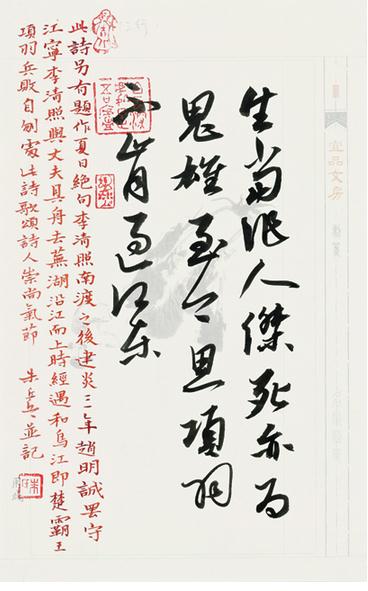 宜品文房
生當作人傑死亦为
鬼雄至今思項羽
不肯过江东
此詩另有題作夏日絕句李清照南渡之後建炎三年趙明誠罷守
江寧李清照與丈夫具舟去蕪湖沿江而上時經過和烏江即楚霸王
項羽兵敗自刎處此詩歌頌詩人崇尚氣節 朱並記